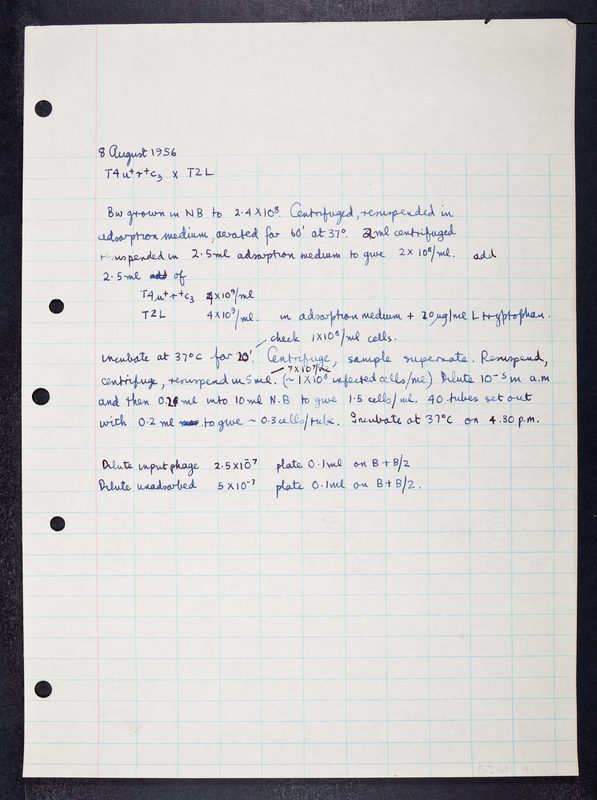 8 August 1956
T4u⁺r⁺c₃ x T2L
Bw grown in NB to 2.4 x 10⁸. Centrifuged, resuspended in
adsorption medium, aerated for 60' at 37°. 2ml centrifuged
resuspended in 2.5ml adsorption medium to give 2 x 10⁸/ml. add
2.5ml add of
T4u⁺r⁺c₃ 4x10⁹/ml
T2L 4x10⁹/ml. in adsorption medium + 20µg/ml L tryptophan.
check 1x10⁸/ml cells.
Incubate at 37°C for 10'. Centrifuge, sample supernate. Resuspend,
7x10⁷/ml
centrifuge, resuspend in 5ml. (~ 1x10⁸ infected cells/ml) Dilute 10⁻⁵ in a.m
and then 0. ml into 10ml N.B to give 1.5 cells/ml. 40 tubes set out
with 0.2 ml to give ~ 0.3 cells/tube. Incubate at 37°C on 4.30 p.m.
Dilute input phage 2.5x10⁻⁷ plate 0.1ml on B + B/2
Dilute unadsorbed 5 x 10⁻⁷ plate 0.1ml on B + B/2.